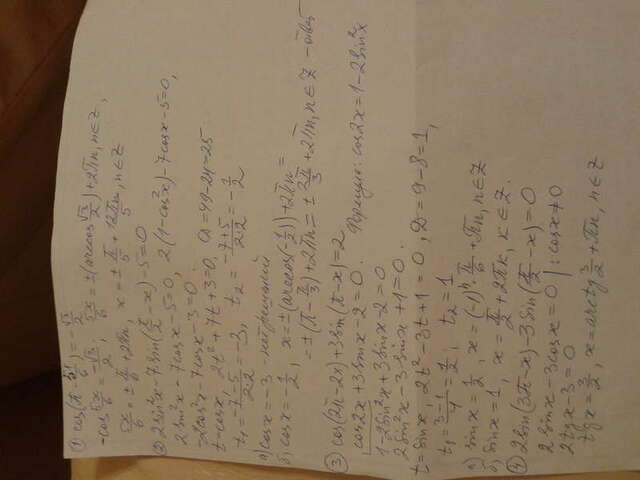 ① cos(π - 5x/6) = √3/2
-cos 5x/6 = √3/2, 5x/6 = ±(arccos √3/2) + 2πn, n∈Z,
5x/6 = ± π/6 + 2πn, x = ± π/5 + 12πn/5, n∈Z
② 2sin²x - 7sin(π/2 - x) - 5 = 0
2sin²x - 7cosx - 5 = 0, 2(1-cos²x) - 7cosx - 5 = 0,
-2cos²x - 7cosx - 3 = 0.
t = cosx, 2t² + 7t + 3 = 0. D = 49 - 24 = 25.
t₁ = -7-5/2·2 = -3, t₂ = -7+5/2·2 = -1/2
а) cosx = -3 - нет решений
б) cosx = -1/2, x = ±(arccos(-1/2)) + 2πn =
= ±(π - π/3) + 2πn = ± 2π/3 + 2πn, n∈Z - ответ
③ cos(2π-2x) + 3sin(π-x) = 2
cos2x + 3sinx - 2 = 0. Формула: cos2x = 1 - 2sin²x
1 - 2sin²x + 3sinx - 2 = 0
2sin²x - 3sinx + 1 = 0.
t = sinx, 2t² - 3t + 1 = 0, D = 9 - 8 = 1,
t₁ = 3-1/4 = 1/2, t₂ = 1
а) sinx = 1/2, x = (-1)ⁿ π/6 + πn, n∈Z
б) sinx = 1, x = π/2 + 2πk, k∈Z.
④ 2sin(3π-x) - 3sin(π/2 - x) = 0
2sinx - 3cosx = 0 | : cosx ≠ 0
2tgx - 3 = 0
tgx = 3/2, x = arctg 3/2 + πn, n∈Z